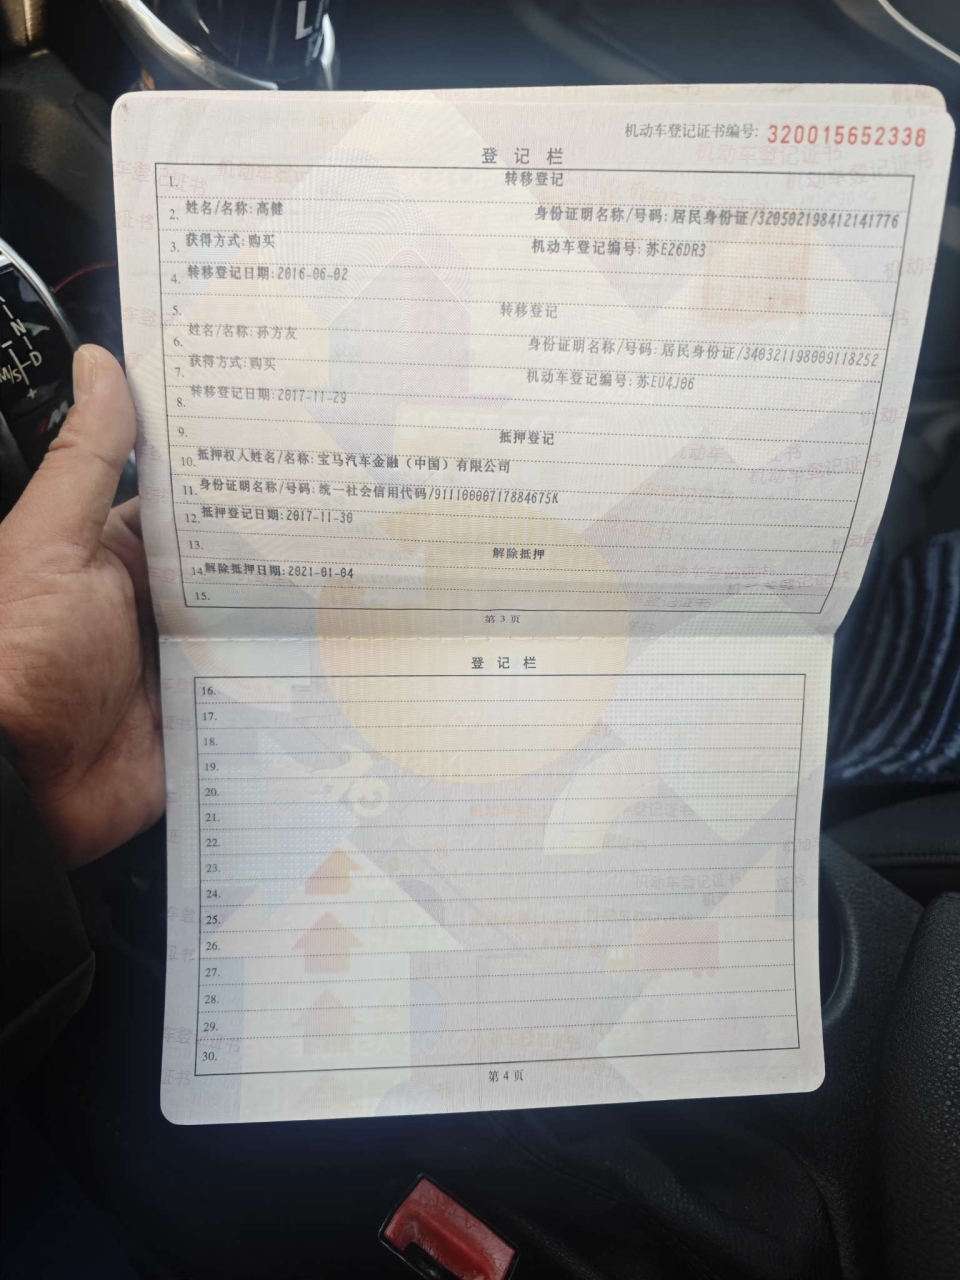 机动车登记证书编号: 320015652338
登记栏
1. 转移登记
2. 姓名/名称: 高健 身份证明名称/号码: 居民身份证/320502198412141776
3. 获得方式: 购买 机动车登记编号: 苏E26DR3
4. 转移登记日期: 2016-06-02
5. 转移登记
6. 姓名/名称: 孙方友 身份证明名称/号码: 居民身份证/340321198009118252
7. 获得方式: 购买 机动车登记编号: 苏EU4J06
8. 转移登记日期: 2017-11-29
9. 抵押登记
10. 抵押权人姓名/名称: 宝马汽车金融（中国）有限公司
11. 身份证明名称/号码: 统一社会信用代码/91110000717884675K
12. 抵押登记日期: 2017-11-30
13. 解除抵押
14. 解除抵押日期: 2021-01-04
15.
第 3 页
登记栏
16.
17.
18.
19.
20.
21.
22.
23.
24.
25.
26.
27.
28.
29.
30.
第 4 页
N
D
M/S
+